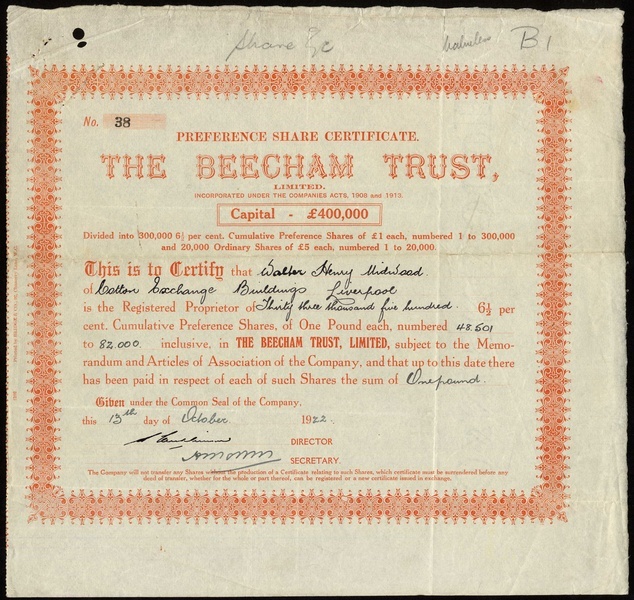 Share &c
B1
No. 38
PREFERENCE SHARE CERTIFICATE.
THE BEECHAM TRUST,
LIMITED.
INCORPORATED UNDER THE COMPANIES ACTS, 1908 and 1913.
Capital - £400,000
Divided into 300,000 6½ per cent. Cumulative Preference Shares of £1 each, numbered 1 to 300,000
and 20,000 Ordinary Shares of £5 each, numbered 1 to 20,000.
This is to Certify that Walter Henry Midwood.
of Cotton Exchange Buildings Liverpool
is the Registered Proprietor of Thirty three thousand five hundred. 6½ per
cent. Cumulative Preference Shares, of One Pound each, numbered 48.501
to 82.000. inclusive, in THE BEECHAM TRUST, LIMITED, subject to the Memo-
randum and Articles of Association of the Company, and that up to this date there
has been paid in respect of each of such Shares the sum of One pound.
Given under the Common Seal of the Company.
this 13th day of October. 1922.
DIRECTOR
SECRETARY.
The Company will not transfer any Shares without the production of a Certificate relating to such Shares, which certificate must be surrendered before any
deed of transfer, whether for the whole or part thereof, can be registered or a new certificate issued in exchange.